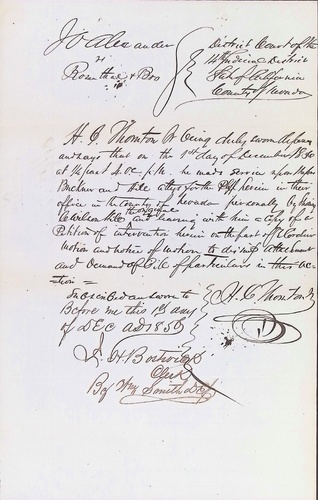 J O Alexander
vs
Rosenthal & Bro
District Court of the
14th Judicial District
State of California
County of Nevada
H. C. Thornton Jr being duly sworn deposes
and says that on the 1st day of December 1856
at past 4 oc p.m. he made service upon Messrs
Buckner and Hill attys for the Plff herein in their
office in the County of Nevada personally by
the original
and leaving with him a copy of a
Petition of intervention herein on the part of
motion and notice of motion to dismiss attachment
and demand of Bill of particulars in this ac
tion =
Subscribed and sworn to
Before me this 1st day
of Dec AD 1856
H. C. Thornton Jr
J. H. Bostwick
Clerk
By Wm Smith Dep